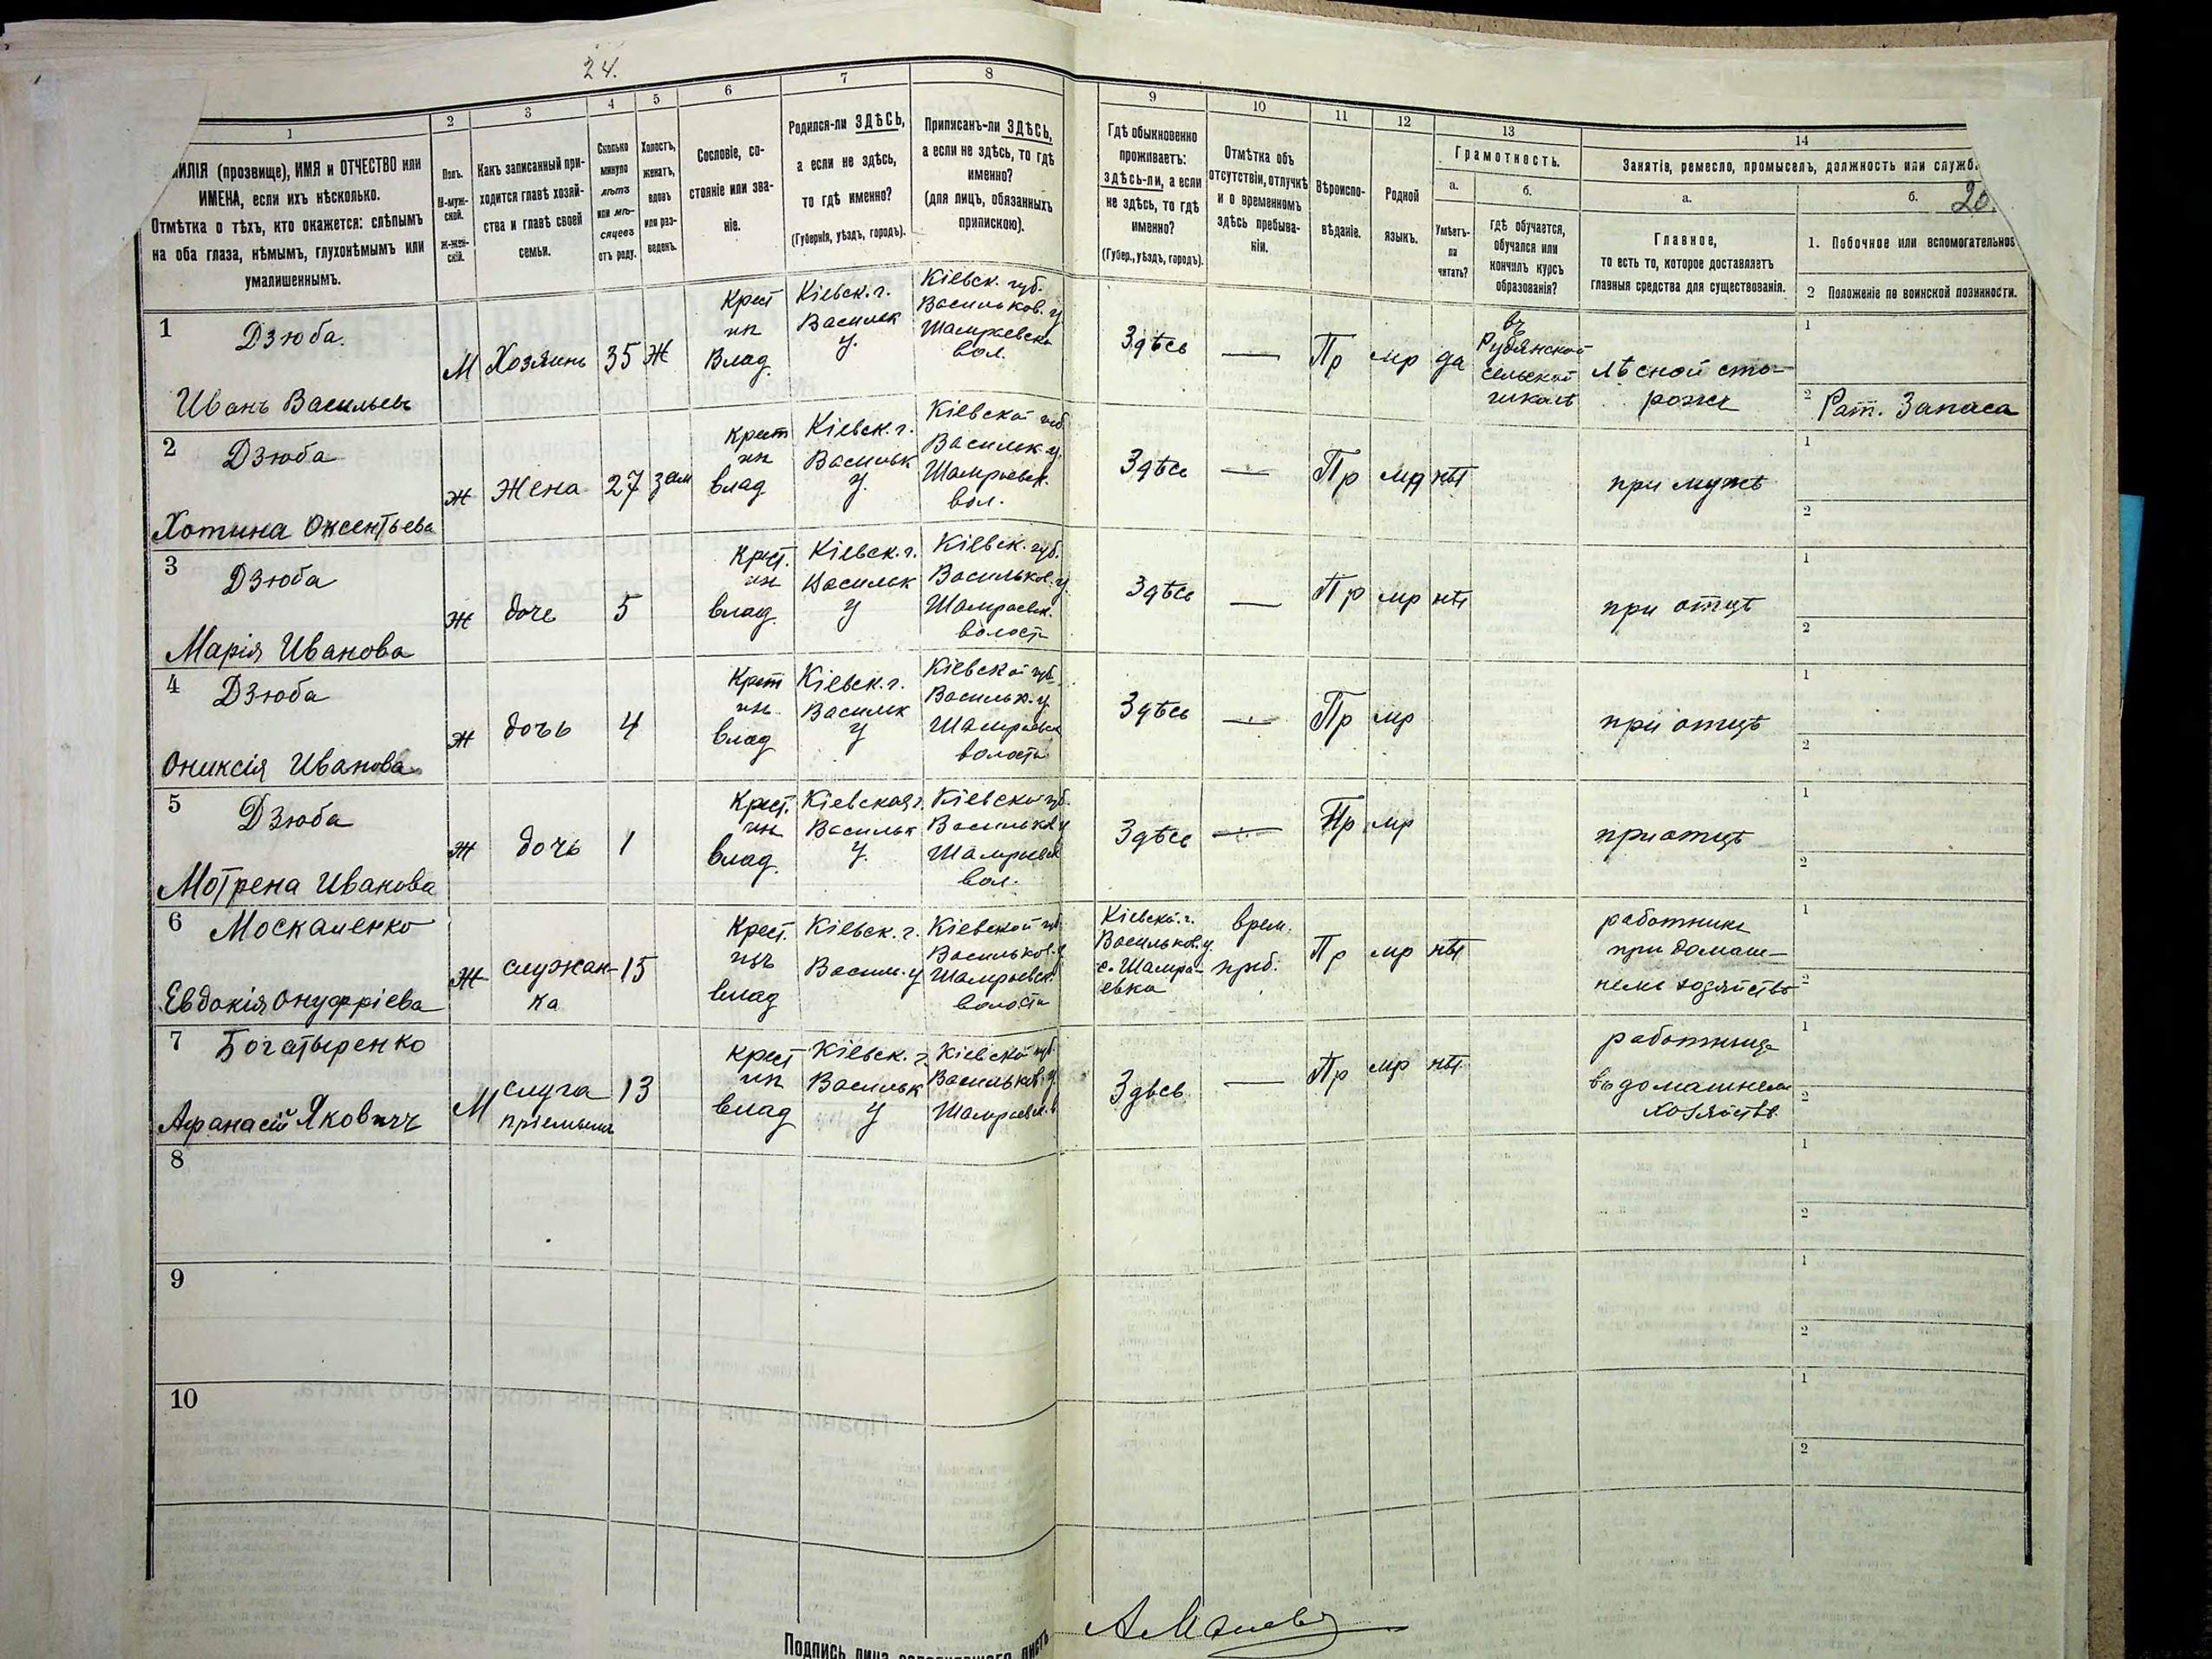 24.
1
2
3
4
5
6
7
8
9
10
11
12
13
14
ИЛІЯ (прозвище), ИМЯ и ОТЧЕСТВО или
ИМЕНА, если ихъ нѣсколько.
Отмѣтка о тѣхъ, кто окажется: слѣпымъ
на оба глаза, нѣмымъ, глухонѣмымъ или
умалишеннымъ.
Полъ.
М-муж-
ской.
Ж-жен-
скій.
Какъ записанный при-
ходится главѣ хозяй-
ства и главѣ своей
семьи.
Сколько
минуло
лѣтъ
или мѣ-
сяцевъ
отъ роду.
Холостъ,
женатъ,
вдовъ
или раз-
веденъ.
Сословіе, со-
стояніе или зва-
ніе.
Родился-ли ЗДѢСЬ,
а если не здѣсь,
то гдѣ именно?
(Губернія, уѣздъ, городъ).
Приписанъ-ли ЗДѢСЬ,
а если не здѣсь, то гдѣ
именно?
(для лицъ, обязанныхъ
припискою).
Гдѣ обыкновенно
проживаетъ:
здѣсь-ли, а если
не здѣсь, то гдѣ
именно?
(Губер., уѣздъ, городъ).
Отмѣтка объ
отсутствіи, отлучкѣ
и о временномъ
здѣсь пребыва-
ніи.
Вѣроиспо-
вѣданіе.
Родной
языкъ.
Грамотность.
а.
б.
Умѣетъ-
ли
читать?
гдѣ обучается,
обучался или
кончилъ курсъ
образованія?
Занятія, ремесло, промыселъ, должность или служб
а.
б.
20.
Главное,
то есть то, которое доставляетъ
главныя средства для существованія.
1. Побочное или вспомогательное
2 Положеніе по воинской повинности.
1
Дзюба.
Иванъ Васильевъ
М
Хозяинъ
35
Ж
Крест
ин
Влад.
Кіевск. г.
Васильк
у.
Кіевск. губ.
Васильков. у
Шамраевска
вол.
Здѣсь
—
Пр
мр
да
въ
Рудянской
сельской
школѣ
лѣсной сто-
рожъ
1
2
Рат. Запаса
2
Дзюба
Хотина Оксентьева
ж
Жена
27
зам
Крест
ин
влад
Кіевск. г.
Васильк
у.
Кіевской губ
Васильк. у.
Шамраевск.
вол.
Здѣсь
—
Пр
мр
нѣт
при мужѣ
1
2
3
Дзюба
Марія Иванова
ж
доче
5
Крест.
ин
влад.
Кіевск. г.
Васильк
у
Кіевск. губ.
Васильков. у.
Шамраевск.
волости
Здѣсь
—
Пр
мр
нѣт
при отцѣ
1
2
4
Дзюба
Ониксія Иванова
ж
дочь
4
Крест
ин.
влад
Кіевск. г.
Васильк
у
Кіевской губ.
Васильк. у.
Шамраевск
волости
Здѣсь
—
Пр
мр
при отцѣ
1
2
5
Дзюба
Мотрена Иванова
ж
дочь
1
Крест.
ин
влад.
Кіевская г.
Васильк
у.
Кіевской губ.
Васильков у
Шамраевск
вол.
Здѣсь
—
Пр
мр
при отцѣ
1
2
6
Москаленко
Евдокія Онуфріева
ж
служан-
ка
15
Крест.
изъ
влад
Кіевск. г.
Васил. у
Кіевской губ.
Васильков. у.
Шамраевск.
волости
Кіевской. г.
Васильков. у.
с. Шамра-
евка
врем.
приб.
Пр
мр
нѣт
работники
при домаш-
немъ хозяйствѣ
1
2
7
Богатыренко
Афанасій Яковичъ
М
слуга
пріемышъ
13
Крест
ин
влад
Кіевск. г.
Васильк
у
Кіевской губ.
Васильков. у.
Шамраевск. в
Здѣсь
—
Пр
мр
нѣт
работница
въ домашнем
хозяйствѣ
1
2
8
1
2
9
1
2
10
1
2
Подпись лица заполнявшего листъ